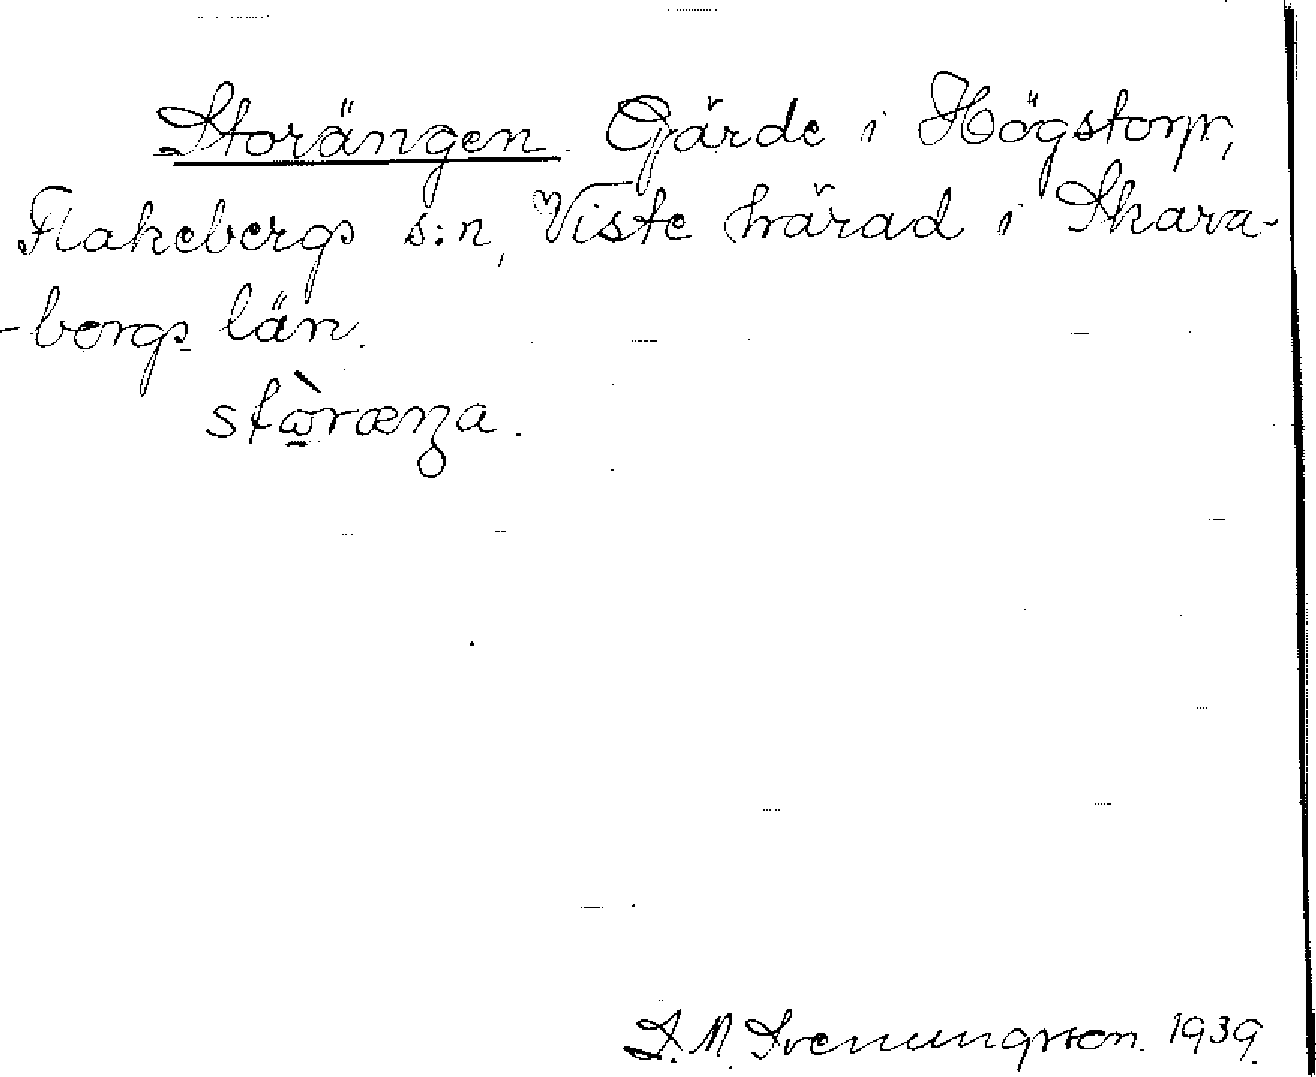 Storängen. Gärde i Högstorp,
Flakebergs s:n, Viste härad i Skara-
-borgs län.
stὼ̲ræŋa.
S. M. Svenungsson. 1939.